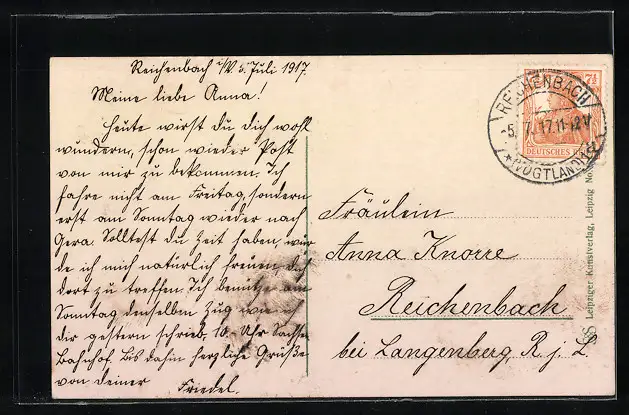 Reichenbach i/V. 5. Juli 1917.
Meine liebe Anna!
Heute wirst du dich wohl
wundern, schon wieder Post
von mir zu bekommen. Ich
fahre nicht am Freitag, sondern
erst am Sonntag wieder nach
Gera. Solltest du Zeit haben, wür
de ich mich natürlich freuen dich
dort zu treffen. Ich benütze am
Sonntag denselben Zug wie ich
dir gestern schrieb. 10 Uhr Sächs.
Bahnhof. Bis dahin herzliche Grüße
von deiner Friedel.
REICHENBACH
-5. 7. 17. 11-12 V
* (VOGTLAND)
7½
DEUTSCHES REICH
Fräulein
Anna Knorre
Reichenbach
bei Langenberg R. j. L.
Leipziger Kunstverlag, Leipzig No.